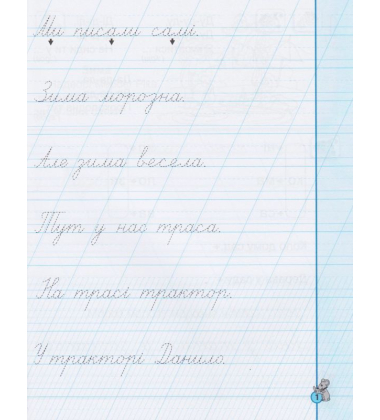 Ми писали самі.
Зима морозна.
Але зима весела.
Тут у нас траса.
На трасі трактор.
У тракторі Данило.
1